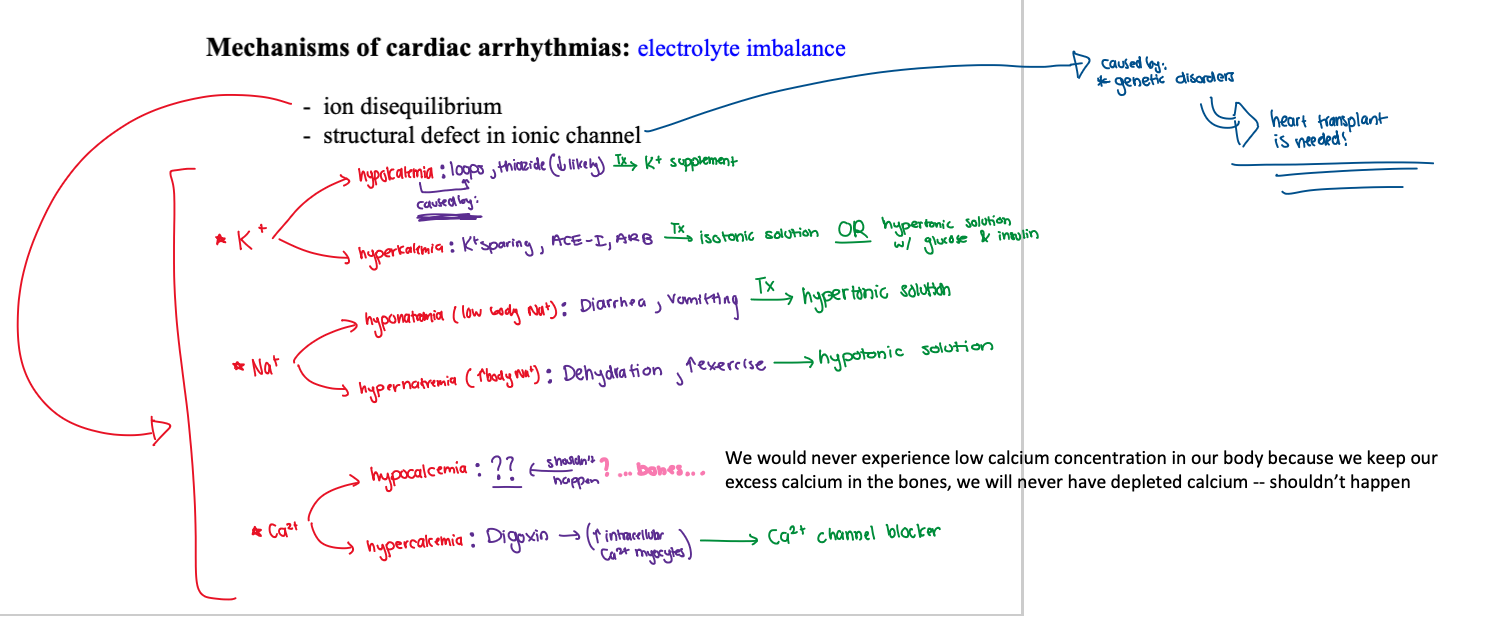 Mechanisms of cardiac arrhythmias: electrolyte imbalance
caused by:
* genetic disorders
heart transplant
is needed!
- ion disequilibrium
- structural defect in ionic channel
* K+
hypokalemia : loops , thiazide (↓ likely) Tx→ K+ supplement
caused by:
hyperkalemia : K+ sparing , ACE-I, ARB Tx→ isotonic solution OR hypertonic solution
w/ glucose & insulin
* Na+
hyponatremia (low body Na+) : Diarrhea , vomitting Tx→ hypertonic solution
hypernatremia (↑body Na+) : Dehydration , ↑exercise → hypotonic solution
* Ca2+
hypocalcemia : ?? ← shouldn't happen ? ... bones...
We would never experience low calcium concentration in our body because we keep our
excess calcium in the bones, we will never have depleted calcium -- shouldn't happen
hypercalcemia : Digoxin → (↑ intracellular
Ca2+ myocytes) → Ca2+ channel blocker